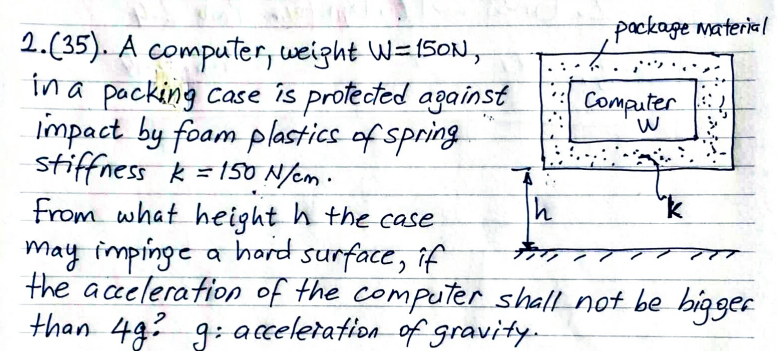 package material
2.(35). A computer, weight W=150N,
in a packing case is protected against
Computer
W
impact by foam plastics of spring
stiffness k = 150 N/cm.
k
From what height h the case
h
may impinge a hard surface, if
the acceleration of the computer shall not be bigger
than 4g? g: acceleration of gravity.